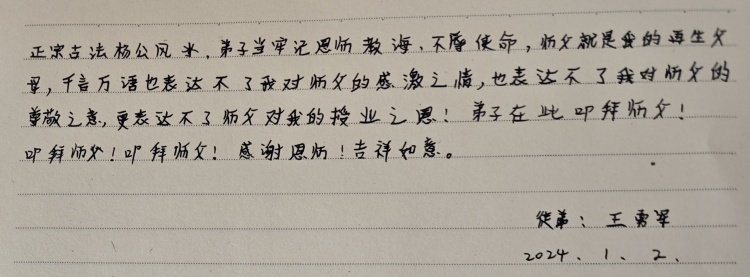 正宗古法杨公风水，弟子当牢记恩师教诲，不辱使命，师父就是我的再生父
母，千言万语也表达不了我对师父的感激之情，也表达不了我对师父的
尊敬之意，更表达不了师父对我的授业之恩！弟子在此叩拜师父！
叩拜师父！叩拜师父！感谢恩师！吉祥如意。
徒弟：王勇军
2024.1.2.